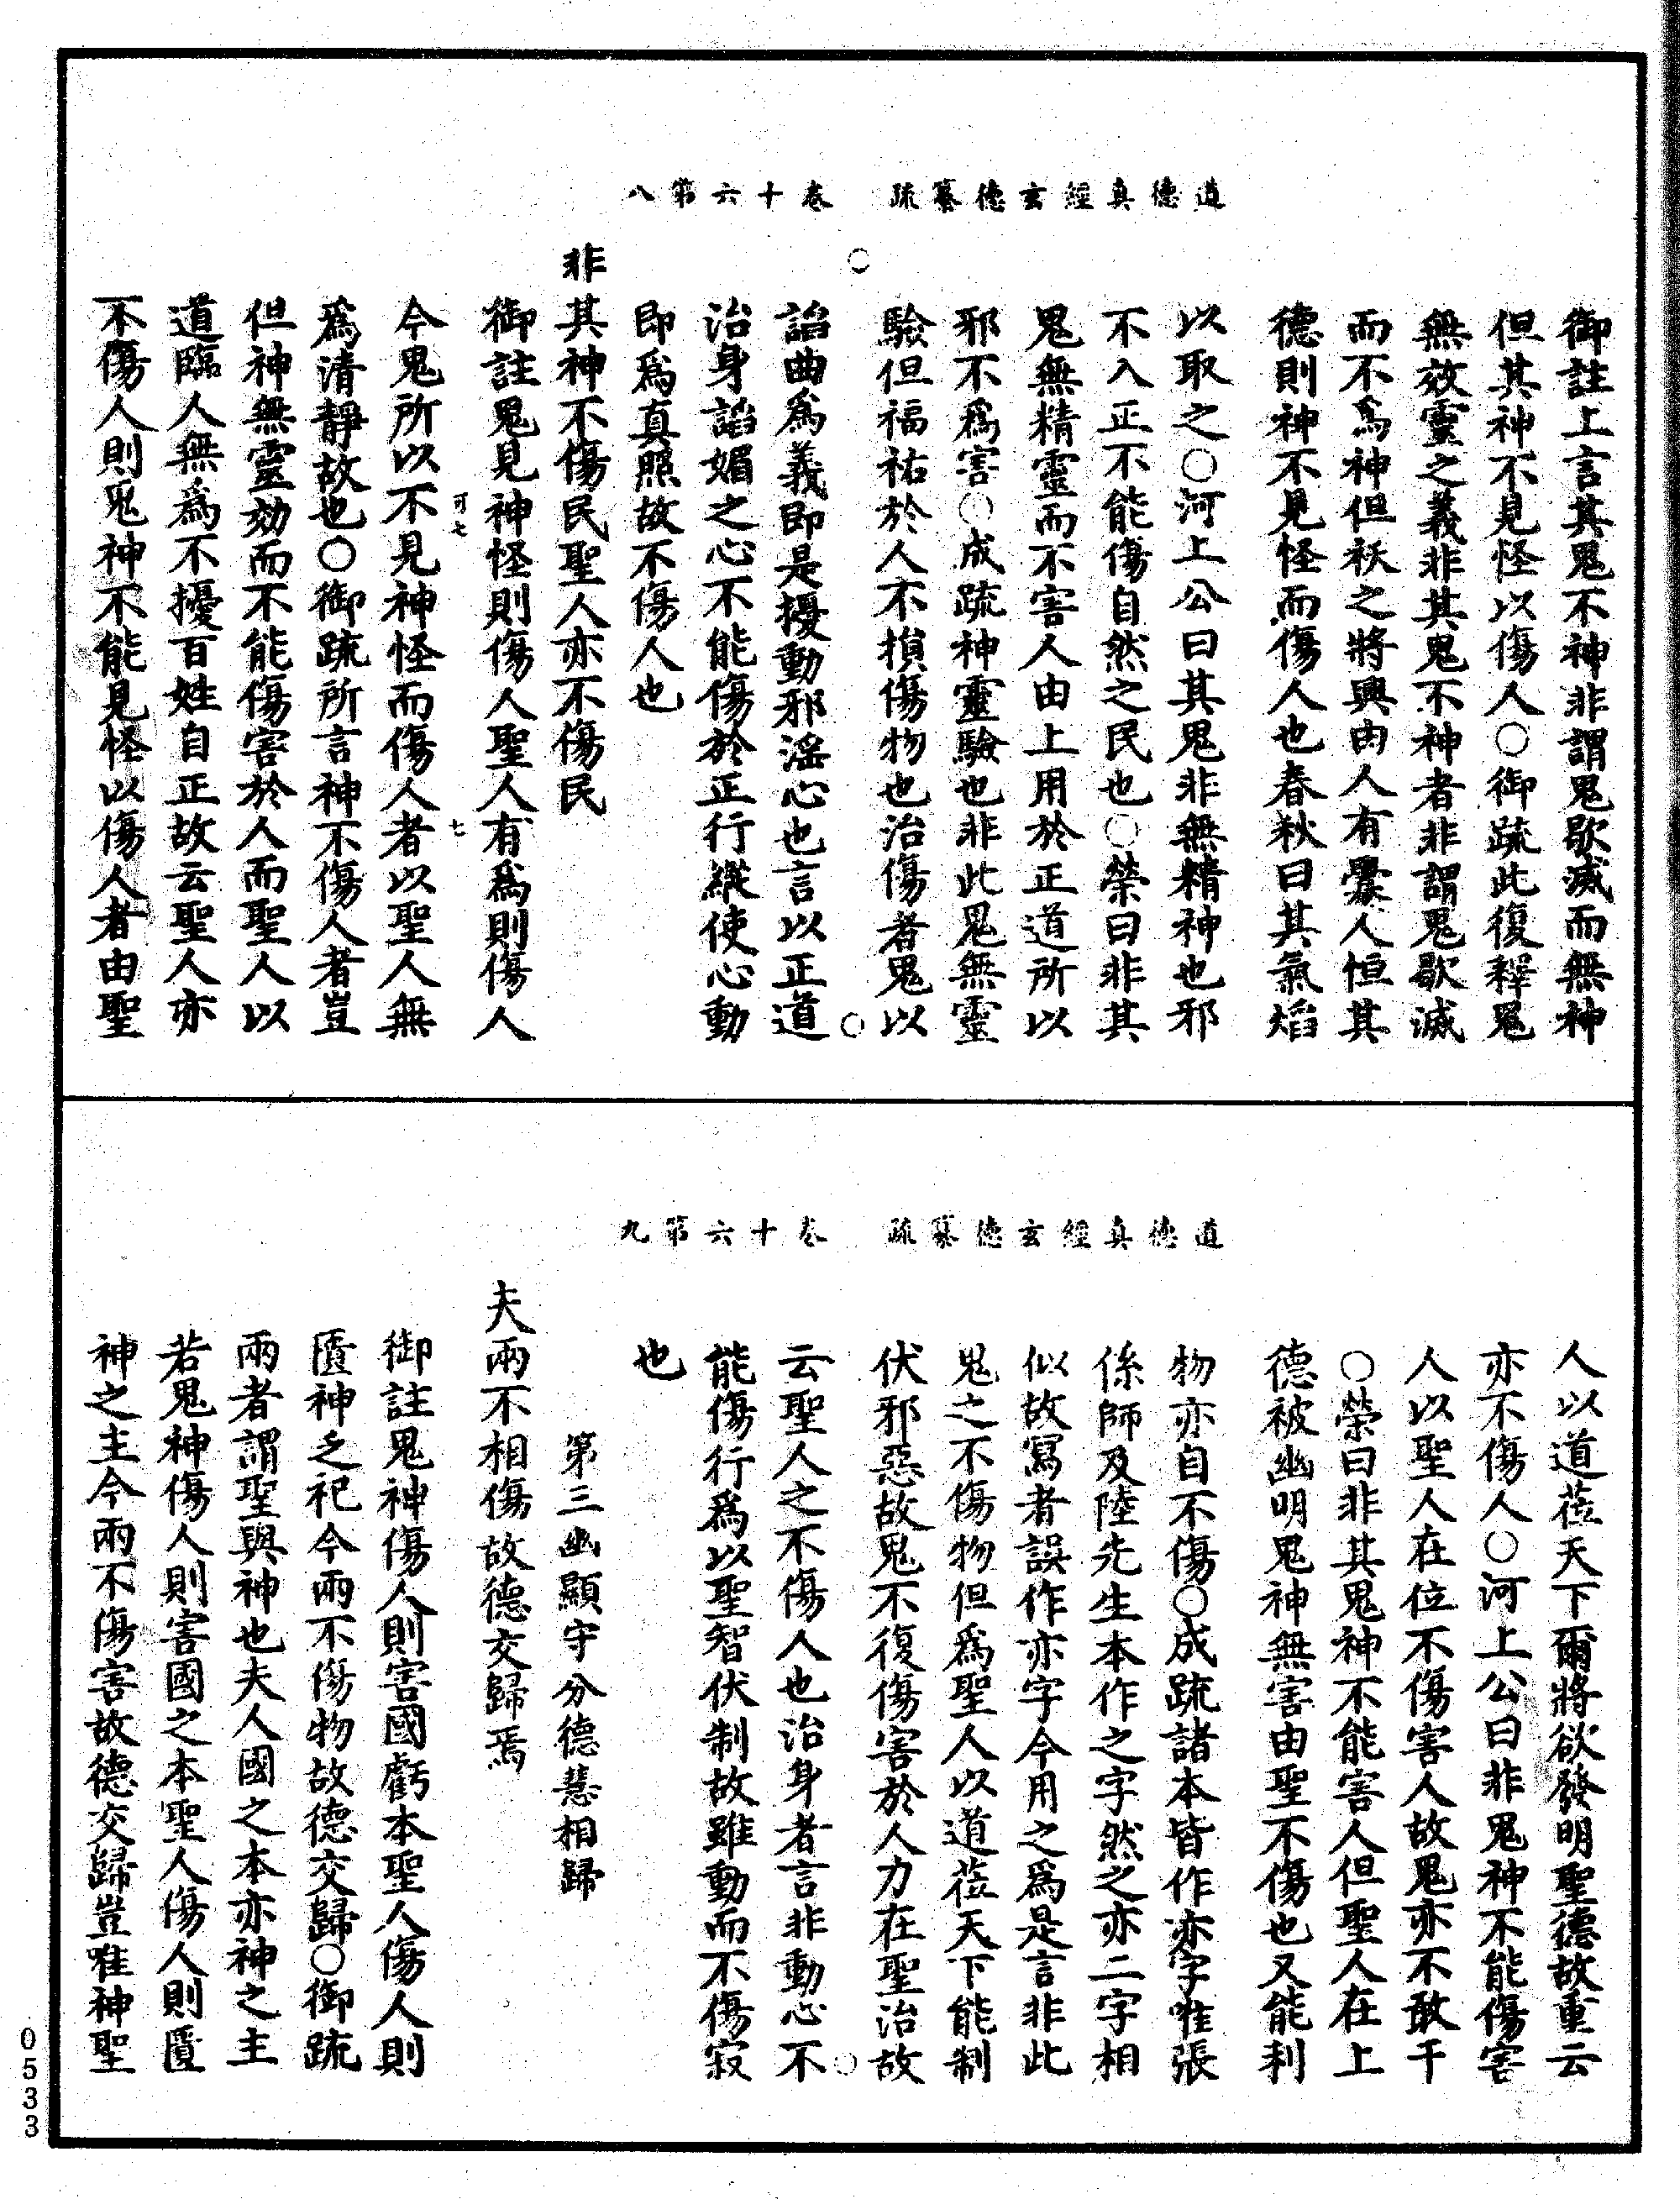 道德真經玄德纂疏　卷十六第八
御註上言其鬼不神非謂鬼歇滅而無神
但其神不見怪以傷人○御疏此復釋鬼
無效靈之義非其鬼不神者非謂鬼歇滅
而不爲神但袄之將興由人有釁人恒其
德則神不見怪而傷人也春秋曰其氣焰
以取之○河上公曰其鬼非無精神也邪
不入正不能傷自然之民也○榮曰非其
鬼無精靈而不害人由上用於正道所以
邪不爲害○成疏神靈驗也非此鬼無靈
驗但福祐於人不損傷物也治傷者鬼以
諂曲爲義即是擾動邪滛心也言以正道
治身諂媚之心不能傷於正行縱使心動
即爲真照故不傷人也
非其神不傷民聖人亦不傷民
御註鬼見神怪則傷人聖人有爲則傷人
可七　七
今鬼所以不見神怪而傷人者以聖人無
爲清靜故也○御疏所言神不傷人者豈
但神無靈効而不能傷害於人而聖人以
道臨人無爲不擾百姓自正故云聖人亦
不傷人則鬼神不能見怪以傷人者由聖
道德真經玄德纂疏　卷十六第九
人以道莅天下爾將欲發明聖德故重云
亦不傷人○河上公曰非鬼神不能傷害
人以聖人在位不傷害人故鬼亦不敢干
○榮曰非其鬼神不能害人但聖人在上
德被幽明鬼神無害由聖不傷也又能利
物亦自不傷○成疏諸本皆作亦字唯張
係師及陸先生本作之字然之亦二字相
似故寫者誤作亦字今用之爲是言非此
鬼之不傷物但爲聖人以道莅天下能制
伏邪惡故鬼不復傷害於人力在聖治故
云聖人之不傷人也治身者言非動心不
能傷行爲以聖智伏制故雖動而不傷寂
也
第三幽顯守分德慧相歸
夫兩不相傷故德交歸焉
御註鬼神傷人則害國虧本聖人傷人則
匱神乏祀今兩不傷物故德交歸○御疏
兩者謂聖與神也夫人國之本亦神之主
若鬼神傷人則害國之本聖人傷人則匱
神之主今兩不傷害故德交歸豈唯神聖
0533